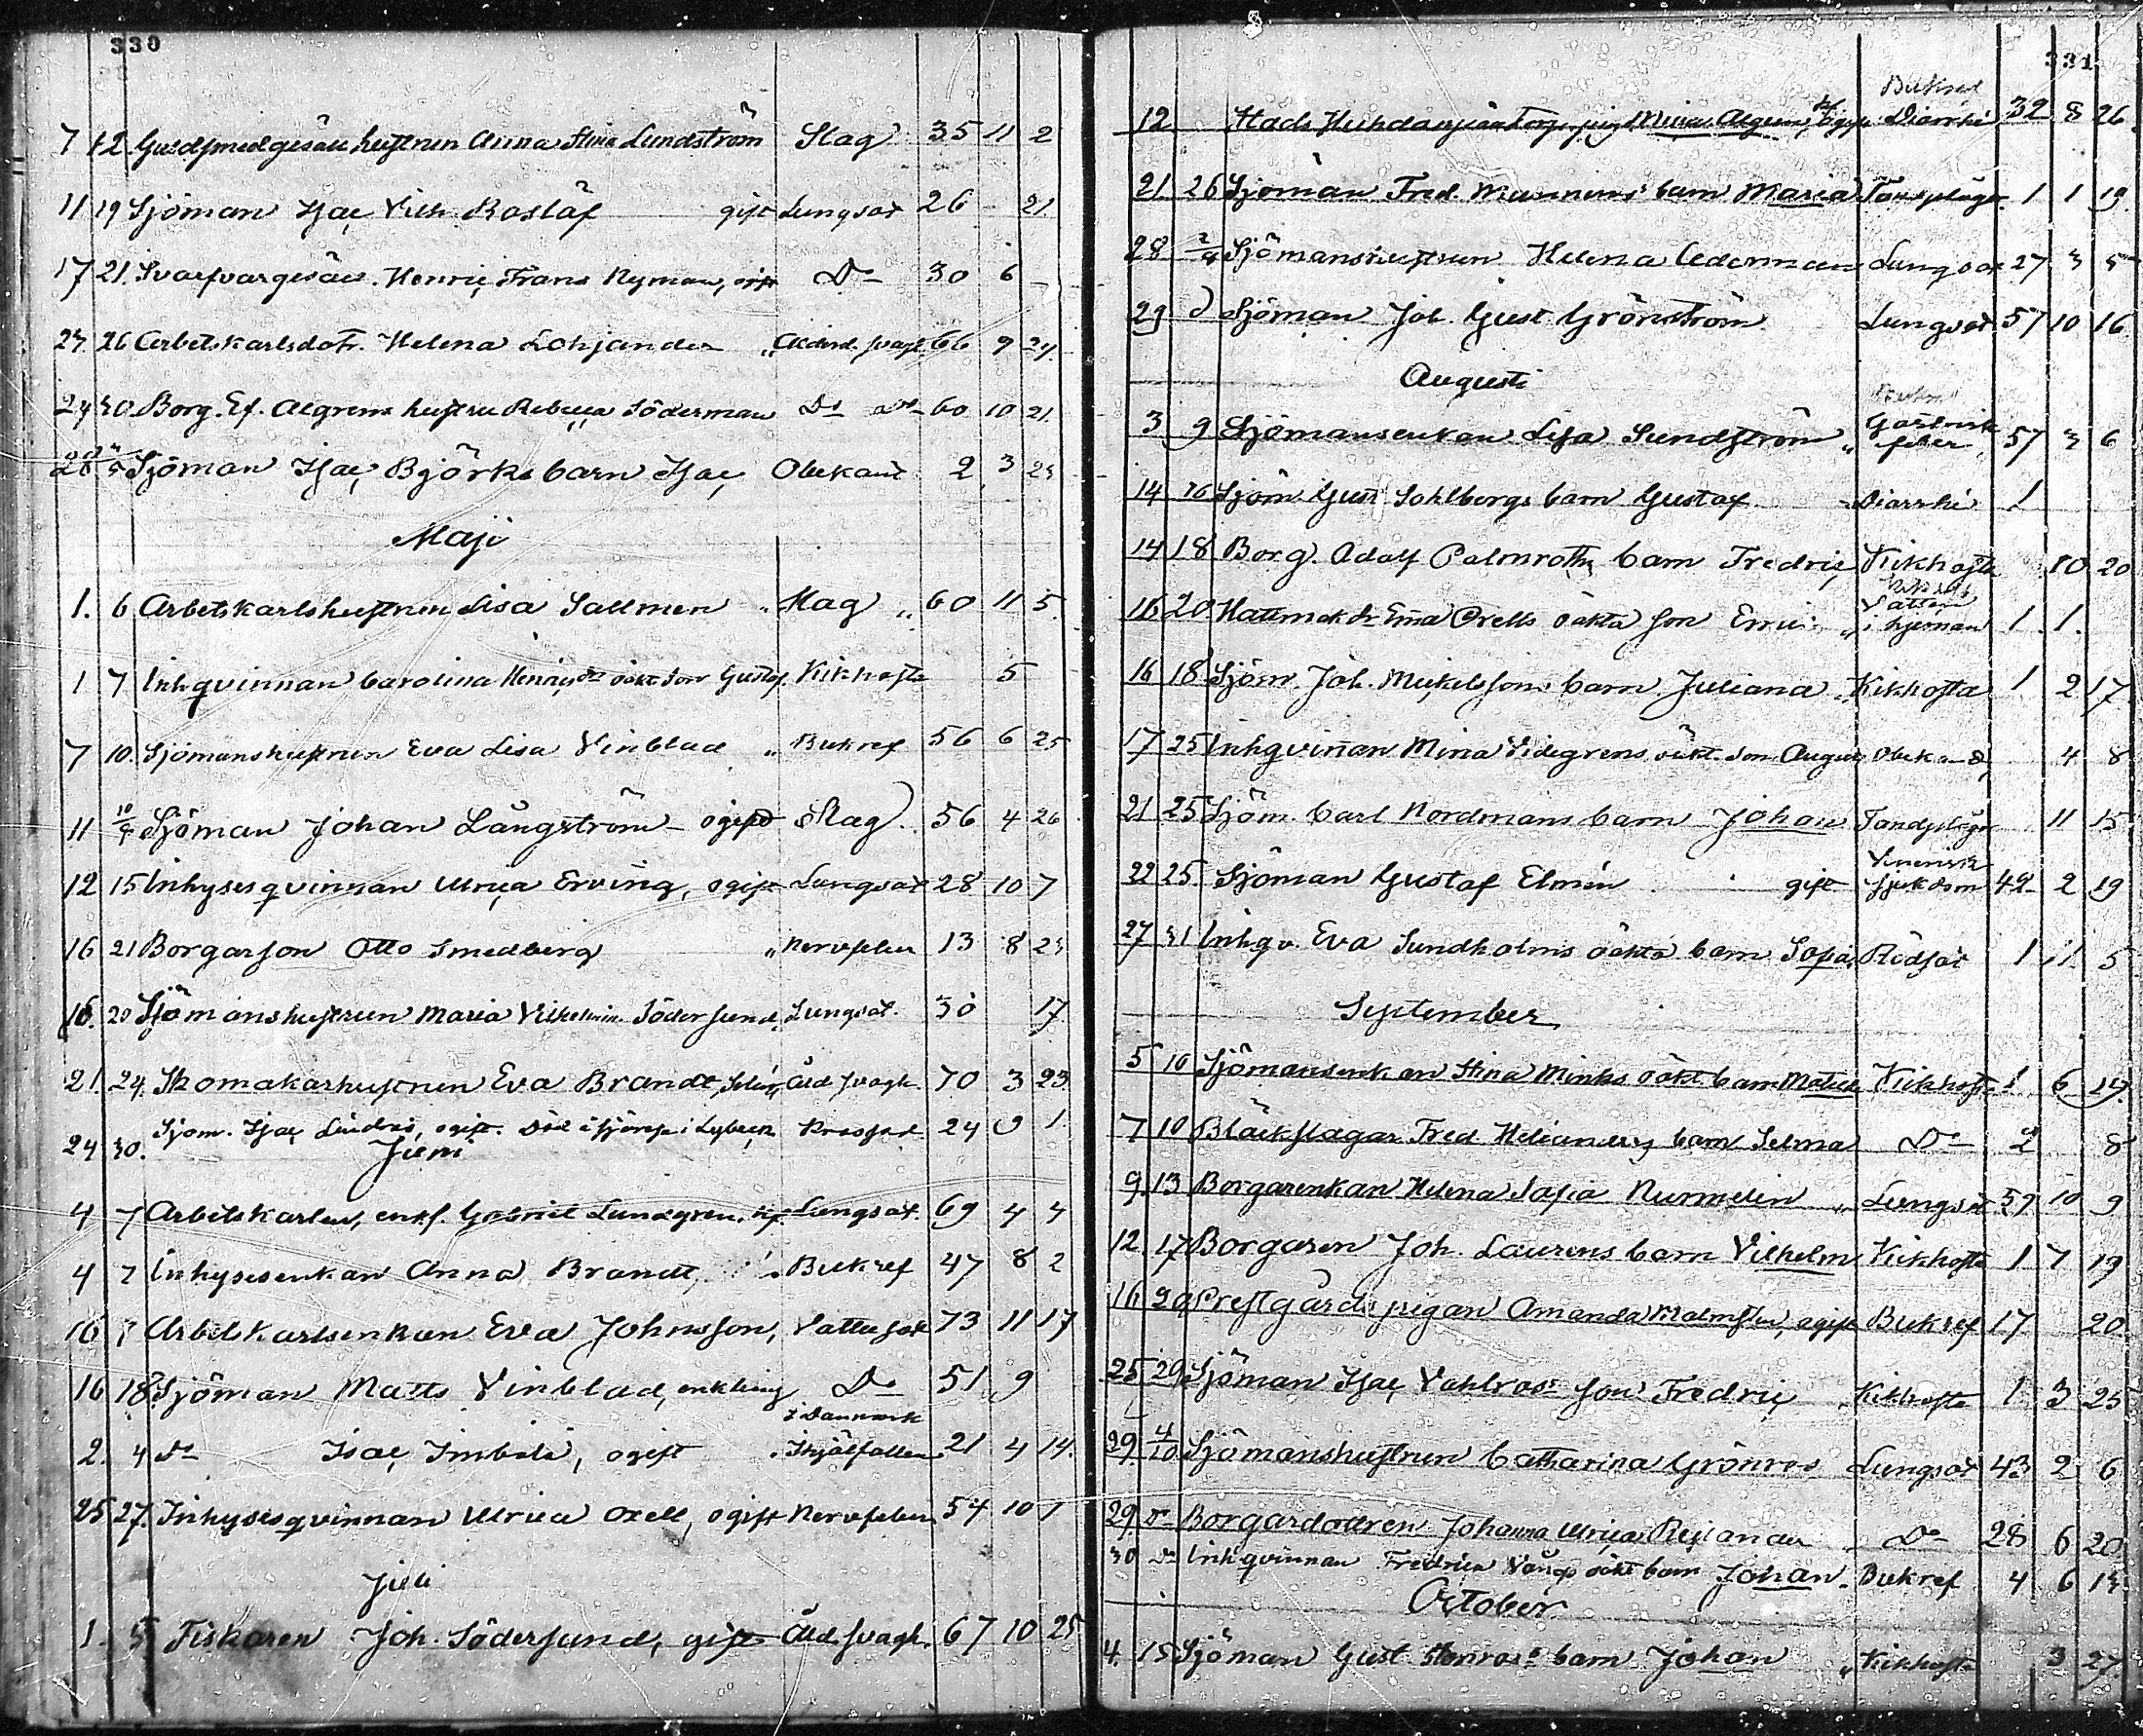 330
7 12 Guldsmedgesäll hustrun Anna Stina Lundström Slag 35 11 2
11 19 Sjöman Isac Vilh. Boslöf gift Lungsot 26 21
17 21. Svarfvargesäll. Henric Frans Nyman, gift Do 30 6
23. 26 Arbetskarlsdotr. Helena Lohjander „ Ålderd. svagh. 66 9 24
24 30. Borg. Ef. Algrens hustru Rebecca Söderman Do Do 60 10 21.
28 Sjöman Isac Björks barn Isac Obekant 2 3 23
Maji
1. 6 Arbetskarlshustrun Lisa Sallmen „ Slag „ 60 11 5.
1 7 Inhqvinnan Carolina Henricsdr oäkt son Gustaf. Kikhosta 5
7 10. Sjömanshustrun Eva Lisa Vinblad „ Bukref 56 6 25
11 Sjöman Johan Långström – ogift Slag 56 4 26
12 15 Inhysesqvinnan Ulrica Erving, ogift Lungsot 28 10 7
16 21 Borgarson Otto Smedberg „ Nervfeber 13 8 23
16. 20 Sjömanshustrun Maria Vilhelmin. Södersund, Lungsot. 30 17
21. 24. Skomakarhustrun Eva Brandt, Åld. svagh. 70 3 23.
24 30. Sjöm. Isac Lindros, ogift. Död i sjönöd i Lybeck 24 9 1
Juni
4 7 Arbetskarlen, enkl. Gabriel Lundgren, Lungsot. 69 4 4
4 7 Inhysesenkan Anna Brandt, „ Bukref 47 8 2
16 Arbetskarlsenkan Eva Johnsson, Vattusot 73 11 17
16 18. Sjöman Matts Vinblad, enkling Do 51 9
i Danmark
2. 4 Do Isac Imbelä, ogift „ Ihjälfallen 21 4 14.
25 27. Inhysesqvinnan Ulrica Orell, ogift Nervfeber 54 10 1
Juli
1. 5 Fiskaren Joh. Södersund, gift Åld. svagh. 67 10 25
331
Bukref
12 Mina Algren, Diarrhé 32 8 26
21. 26 Sjöman Fred. Mannins barn Maria Tandplågor. 1 1 19.
28 2/4 Sjömanshustrun Helena Cederman Lungsot 27 3 5
29 d Sjöman Joh. Gust Grönström Lungsot 57 10 16
Augusti
3 9 Sjömansenkan Lisa Sundström „ Gastrisk feber 57 3 6
14 16 Sjöm. Gust. Sohlbergs barn Gustaf Diarrhé 1
14 18 Borg. Adolf Palmroths barn Fredric Kikhosta 10 20
16 20. Hattmak.dr Ema Orells oäkta son Erric „ Vatten i hjernan 1 1.
16 18 Sjöm. Joh. Mickelssons barn Juliana „ Kikhosta 1 2 17
17 25 Inhqvinnan Mina Videgrens oäkt. son August Obekand 4 8
21 25 Sjöm. Carl Nordmans barn Johan Tandplågor 11 15
22 25. Sjöman Gustaf Elmén gift Venerisk sjukdom 42 2 19
27 31 Inhqv. Eva Sundholms oäkta barn Sofia, Rödsot 1 11 5
September
5 10 Sjömansenkan Stina Minks oäkt barn Matilda Kikhosta 1 6 19.
7 10 Bläckslagar Fred. Helianders barn Selma Do 2 8
9. 13 Borgarenkan Helena Sofia Nurmelin „ Lungsot 59 10 9
12. 17 Borgaren Joh. Laurens barn Vilhelm Kikhosta 1 7 19
16 20 Prestgårds pigan Amanda Malmsten, ogift Bukref 17 20
25 29 Sjöman Isac Vahlroos son Fredric Kikhosta 1. 3 25
29 4/10 Sjömanshustrun Catharina Grönros Lungsot 43 2 6
29 Do Borgardottren Johanna Ulrica Rejlander Do 28 6 20
30 Do Inhqvinnan Fredrica Vångs oäkt barn Johan „ Bukref 4 6 13
October
4. 15 Sjöman Gust. Stenros's barn Johan „ Kikhosta 3 27